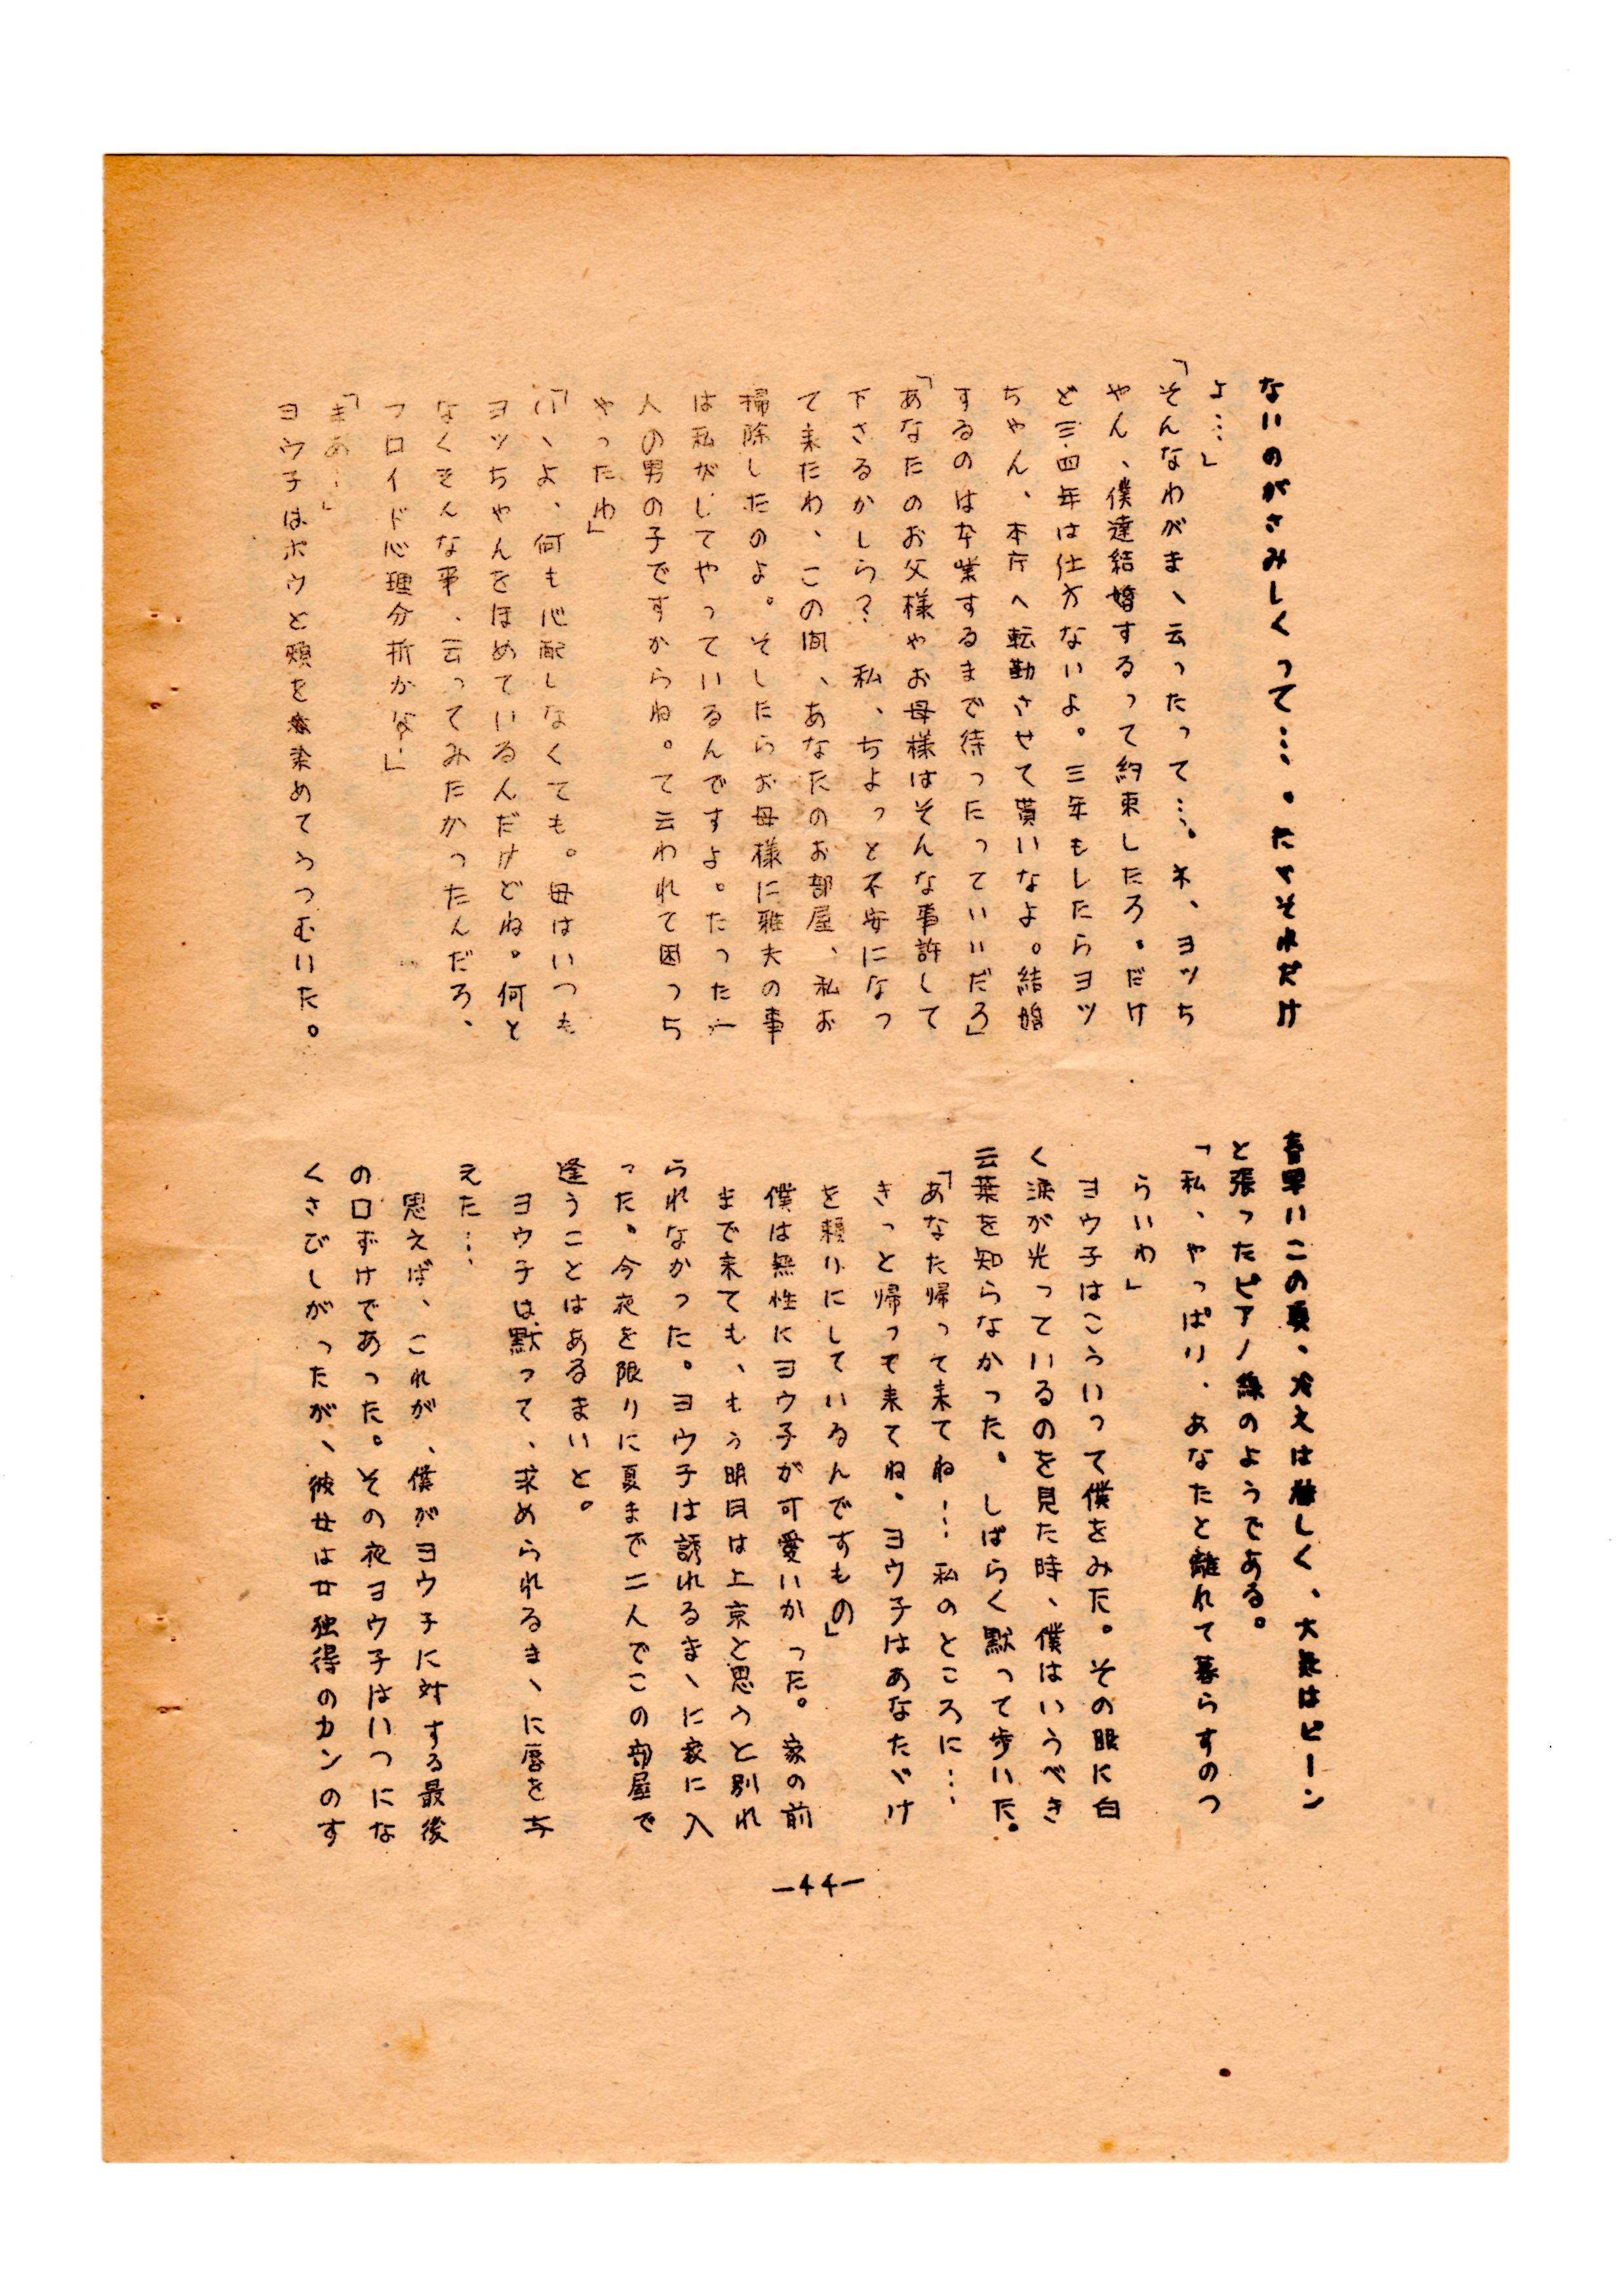 ないのがさみしくって…。たゞそれだけ
よ…」
「そんなわがまゝ云ったって…。ネ、ヨッち
やん、僕達結婚するって約束したろ。だけ
ど三・四年は仕方ないよ。三年もしたらヨッ
ちやん、本庁へ転勤させて貰いなよ。結婚
するのは卒業するまで待ったっていいだろ」
「あなたのお父様やお母様はそんな事許して
下さるかしら？　私、ちよっと不安になっ
て来たわ、この間、あなたのお部屋、私お
掃除したのよ。そしたらお母様に雅夫の事
は私がしてやっているんですよ。たった一
人の男の子ですからね。て云われて困っち
やったわ」
「いゝよ、何も心配しなくても。母はいつも
ヨッちやんをほめているんだけどね。何と
なくそんな事、云ってみたかったんだろ、
フロイド心理分析かな」
「まあ…」
ヨウ子はポウと頬を染めてうつむいた。
春早いこの頃、冷えは激しく、大気はピーン
と張ったピアノ線のようである。
「私、やっぱり、あなたと離れて暮らすのつ
らいわ」
ヨウ子はこういって僕をみた。その眼に白
く涙が光っているのを見た時、僕はいうべき
云葉を知らなかった。しばらく黙って歩いた。
「あなた帰って来てね…私のところに…、
きっと帰って来てね。ヨウ子はあなたゞけ
を頼りにしているんですもの」
僕は無性にヨウ子が可愛いかった。家の前
まで来ても、もう明日は上京と思うと別れ
られなかった。ヨウ子は誘れるまゝに家に入
った。今夜を限りに夏まで二人でこの部屋で
逢うことはあるまいと。
ヨウ子は黙って、求められるまゝに唇を与
えた…
思えば、これが、僕がヨウ子に対する最後
の口ずけであった。その夜ヨウ子はいつにな
くさびしがったが、彼女は女独得のカンのす
—44—